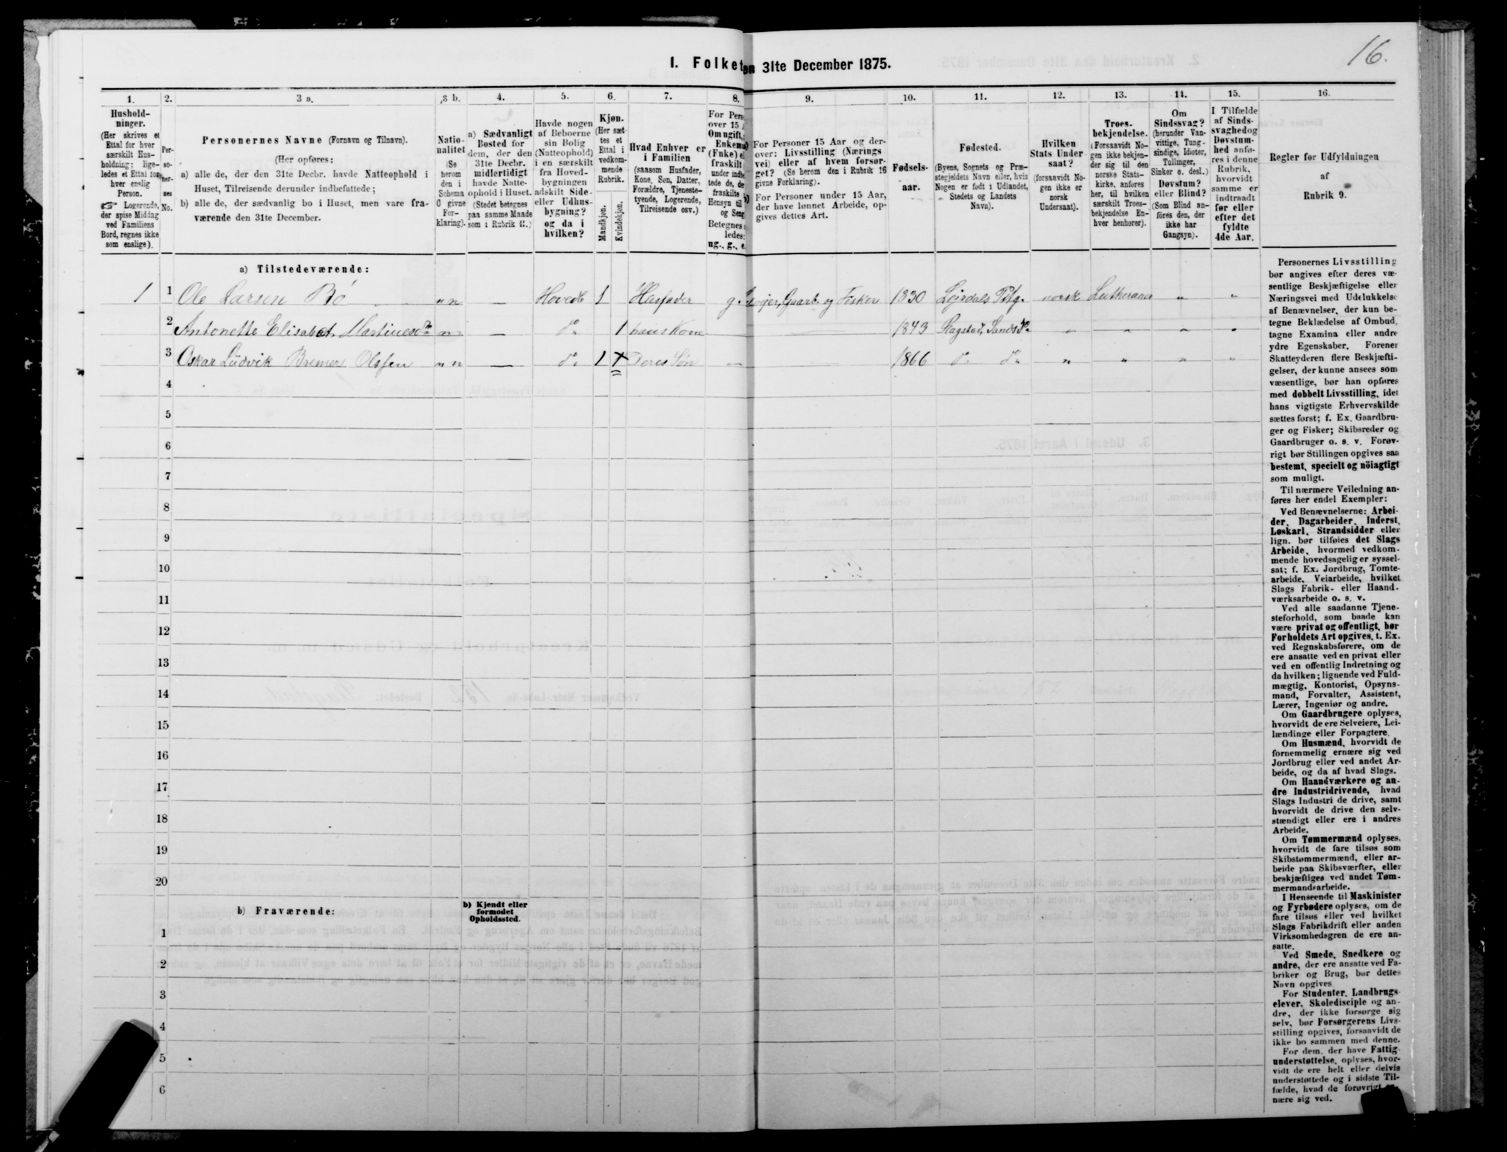 16.
I. Folketal den 31te December 1875.
1.
Hushold-
ninger.
(Her skrives et
Ettal for hver
særskilt Hus-
holdning; lige-
ledes et Ettal for
hver enslig
Person.
☞ Logerende,
der spise Middag
ved Familiens
Bord, regnes ikke
som enslige).
2.
Per-
so-
ner-
nes
No.
3 a.
Personernes Navne (Fornavn og Tilnavn).
(Her opføres:
a) alle de, der den 31te Decbr. havde Natteophold i
Huset, Tilreisende derunder indbefattede;
b) alle de, der sædvanlig bo i Huset, men vare fra-
værende den 31te December.
3 b.
Natio-
nalitet
(Se
herom
den i
Schema
C givne
For-
klaring).
4.
a) Sædvanligt
Bosted for
dem, der den
31te Decbr.
midlertidigt
havde Natte-
ophold i Huset.
(Stedet betegnes
paa samme Maade
som i Rubrik 11.)
5.
Havde nogen
af Beboerne
sin Bolig
(Natteophold)
i en særskilt
fra Hoved-
bygningen
adskilt Side-
eller Udhus-
bygning?
og da i
hvilken?
6.
Kjøn.
(Her sæt-
tes et
Ettal i
vedkom-
mende
Rubrik.
Mandkjøn.
Kvindekjøn.
7.
Hvad Enhver er
i Familien
(saasom Husfader,
Kone, Søn, Datter,
Forældre, Tjeneste-
tyende, Logerende,
Tilreisende osv.)
8.
For Pers
over 15
Om ugift,
Enkem
(Enke) el
fraskilt
9.
For Personer 15 Aar og der-
over: Livsstilling (Nærings
vei) eller af hvem forsør-
get? (Se herom den i Rubrik 16
givne Forklaring).
For Personer under 15 Aar,
der have lønnet Arbeide, op-
gives dettes Art.
10.
Fødsels-
aar.
11.
Fødested.
(Byens, Sognets og Præ-
stegjeldets Navn eller, hvis
Nogen er født i Udlandet,
Stedets og Landets
Navn).
12.
Hvilken
Stats Under-
saat?
(forsaavidt No-
gen ikke er
norsk
Undersaat).
13.
Troes-
bekjendelse.
(Forsaavidt No-
gen ikke bekjen-
der sig til den
norske Stats-
kirke, anføres
her, til hvilken
særskilt Troes-
bekjendelse En-
hver henhører).
14.
Om
Sindssvag?
(herunder Van-
vittige, Tung-
sindige, Idioter,
Tullinger,
Sinker o. desl.)
Døvstum?
eller Blind?
(Som Blind an-
føres den, der
ikke har
Gangsyn).
15.
I Tilfælde
af Sinds-
svaghed og
Døvstum-
hed anfø-
res i denne
Rubrik,
hvorvidt
samme er
indtraadt
før eller
efter det
fyldte
4de Aar.
16.
Regler før Udfyldningen
af
Rubrik 9.
a) Tilstedeværende:
1 1 Ole Larsen Bö " n — Hovedb 1 Husfader g Gaarb. og Fisker 1830 norsk Lutheraner " "
2 Antonette Elisabet Martinesdr n — do 1 huuskone 1843
3 Oskar Ludvik Bremer Olssen " n — do 1 Deres Søn — 1866 do do " " " "
4
5
6
7
8
9
10
11
12
13
14
15
16
17
18
19
20
b) Fraværende:
b) Kjendt eller
formodet
Opholdssted.
1
2
3
4
5
6
Personernes Livsstilling
bør angives efter deres væ-
sentlige Beskjæftigelse eller
Næringsvei med Udelukkelse
af Benævnelser, der kun be-
tegne Beklædelse af Ombud,
tagne Examina eller andre
ydre Egenskaber. Forener
Skatteyderen flere Beskjæfti-
gelser, der kunne ansees som
væsentlige, bør han opføres
med dobbelt Livsstilling, idet
hans vigtigste Erhvervskilde
sættes først; f. Ex. Gaardbru-
ger og Fisker; Skibsreder og
Gaardbruger o. s. v. Forøv-
rigt bør Stillingen opgives saa
bestemt, specielt og nöiagtigt
som muligt.
Til nærmere Veiledning an-
føres her endel Exempler:
Ved Benævnelserne: Arbei-
der, Dagarbeider, Inderst,
Løskarl, Strandsidder eller
lign. bør tilføies det Slags
Arbeide, hvormed vedkom-
mende hovedsagelig er syssel-
sat; f. Ex. Jordbrug, Tomte-
arbeide, Veiarbeide, hvilket
Slags Fabrik- eller Haand-
værksarbeide o. s. v.
Ved alle saadanne Tjene-
steforhold, som baade kan
være privat og offentligt, bør
Forholdets Art opgives, t. Ex.
ved Regnskabsførere, om de
ere ansatte ved en privat eller
ved en offentlig Indretning og
da hvilken; lignende ved Fuld-
mægtig, Kontorist, Opsyns-
mand, Forvalter, Assistent,
Lærer, Ingeniør og andre.
Om Gaardbrugere oplyses,
hvorvidt de ere Selveiere, Lei-
lændinge eller Forpagtere.
Om Husmænd, hvorvidt de
fornemmelig ernære sig ved
Jordbrug eller ved andet Ar-
beide, og da af hvad Slags.
Om Haandværkere og an-
dre Industridrivende, hvad
Slags Industri de drive, samt
hvorvidt de drive den selv-
stændigt eller ere i andres
Arbeide.
Om Tømmermænd oplyses,
hvorvidt de fare tilsøs som
Skibstømmermænd, eller ar-
beide paa Skibsværfter, eller
beskjæftiges ved andet Tøm-
mermandsarbeide.
I Henseende til Maskinister
og Fyrbødere oplyses, om de
fare tilsøs eller ved hvilket
Slags Fabrikdrift eller anden
Virksomhedsgren de ere an-
satte.
Ved Smede, Snedkere og
andre, der ere ansatte ved Fa-
briker og Brug, bør dettes
Navn opgives
For Studenter, Landbrugs-
elever, Skoledisciple og an-
dre, der ikke forsørge sig
selv, bør Forsørgerens Livs-
stilling opgives, forsaavidt de
ikke bo sammen med denne.
For dem, der have Fattig-
understøttelse, oplyses, hvor-
vidt de ere helt eller delvis
understøttede og i sidste Til-
fælde, hvad de forøvrigt er-
nære sig ved.